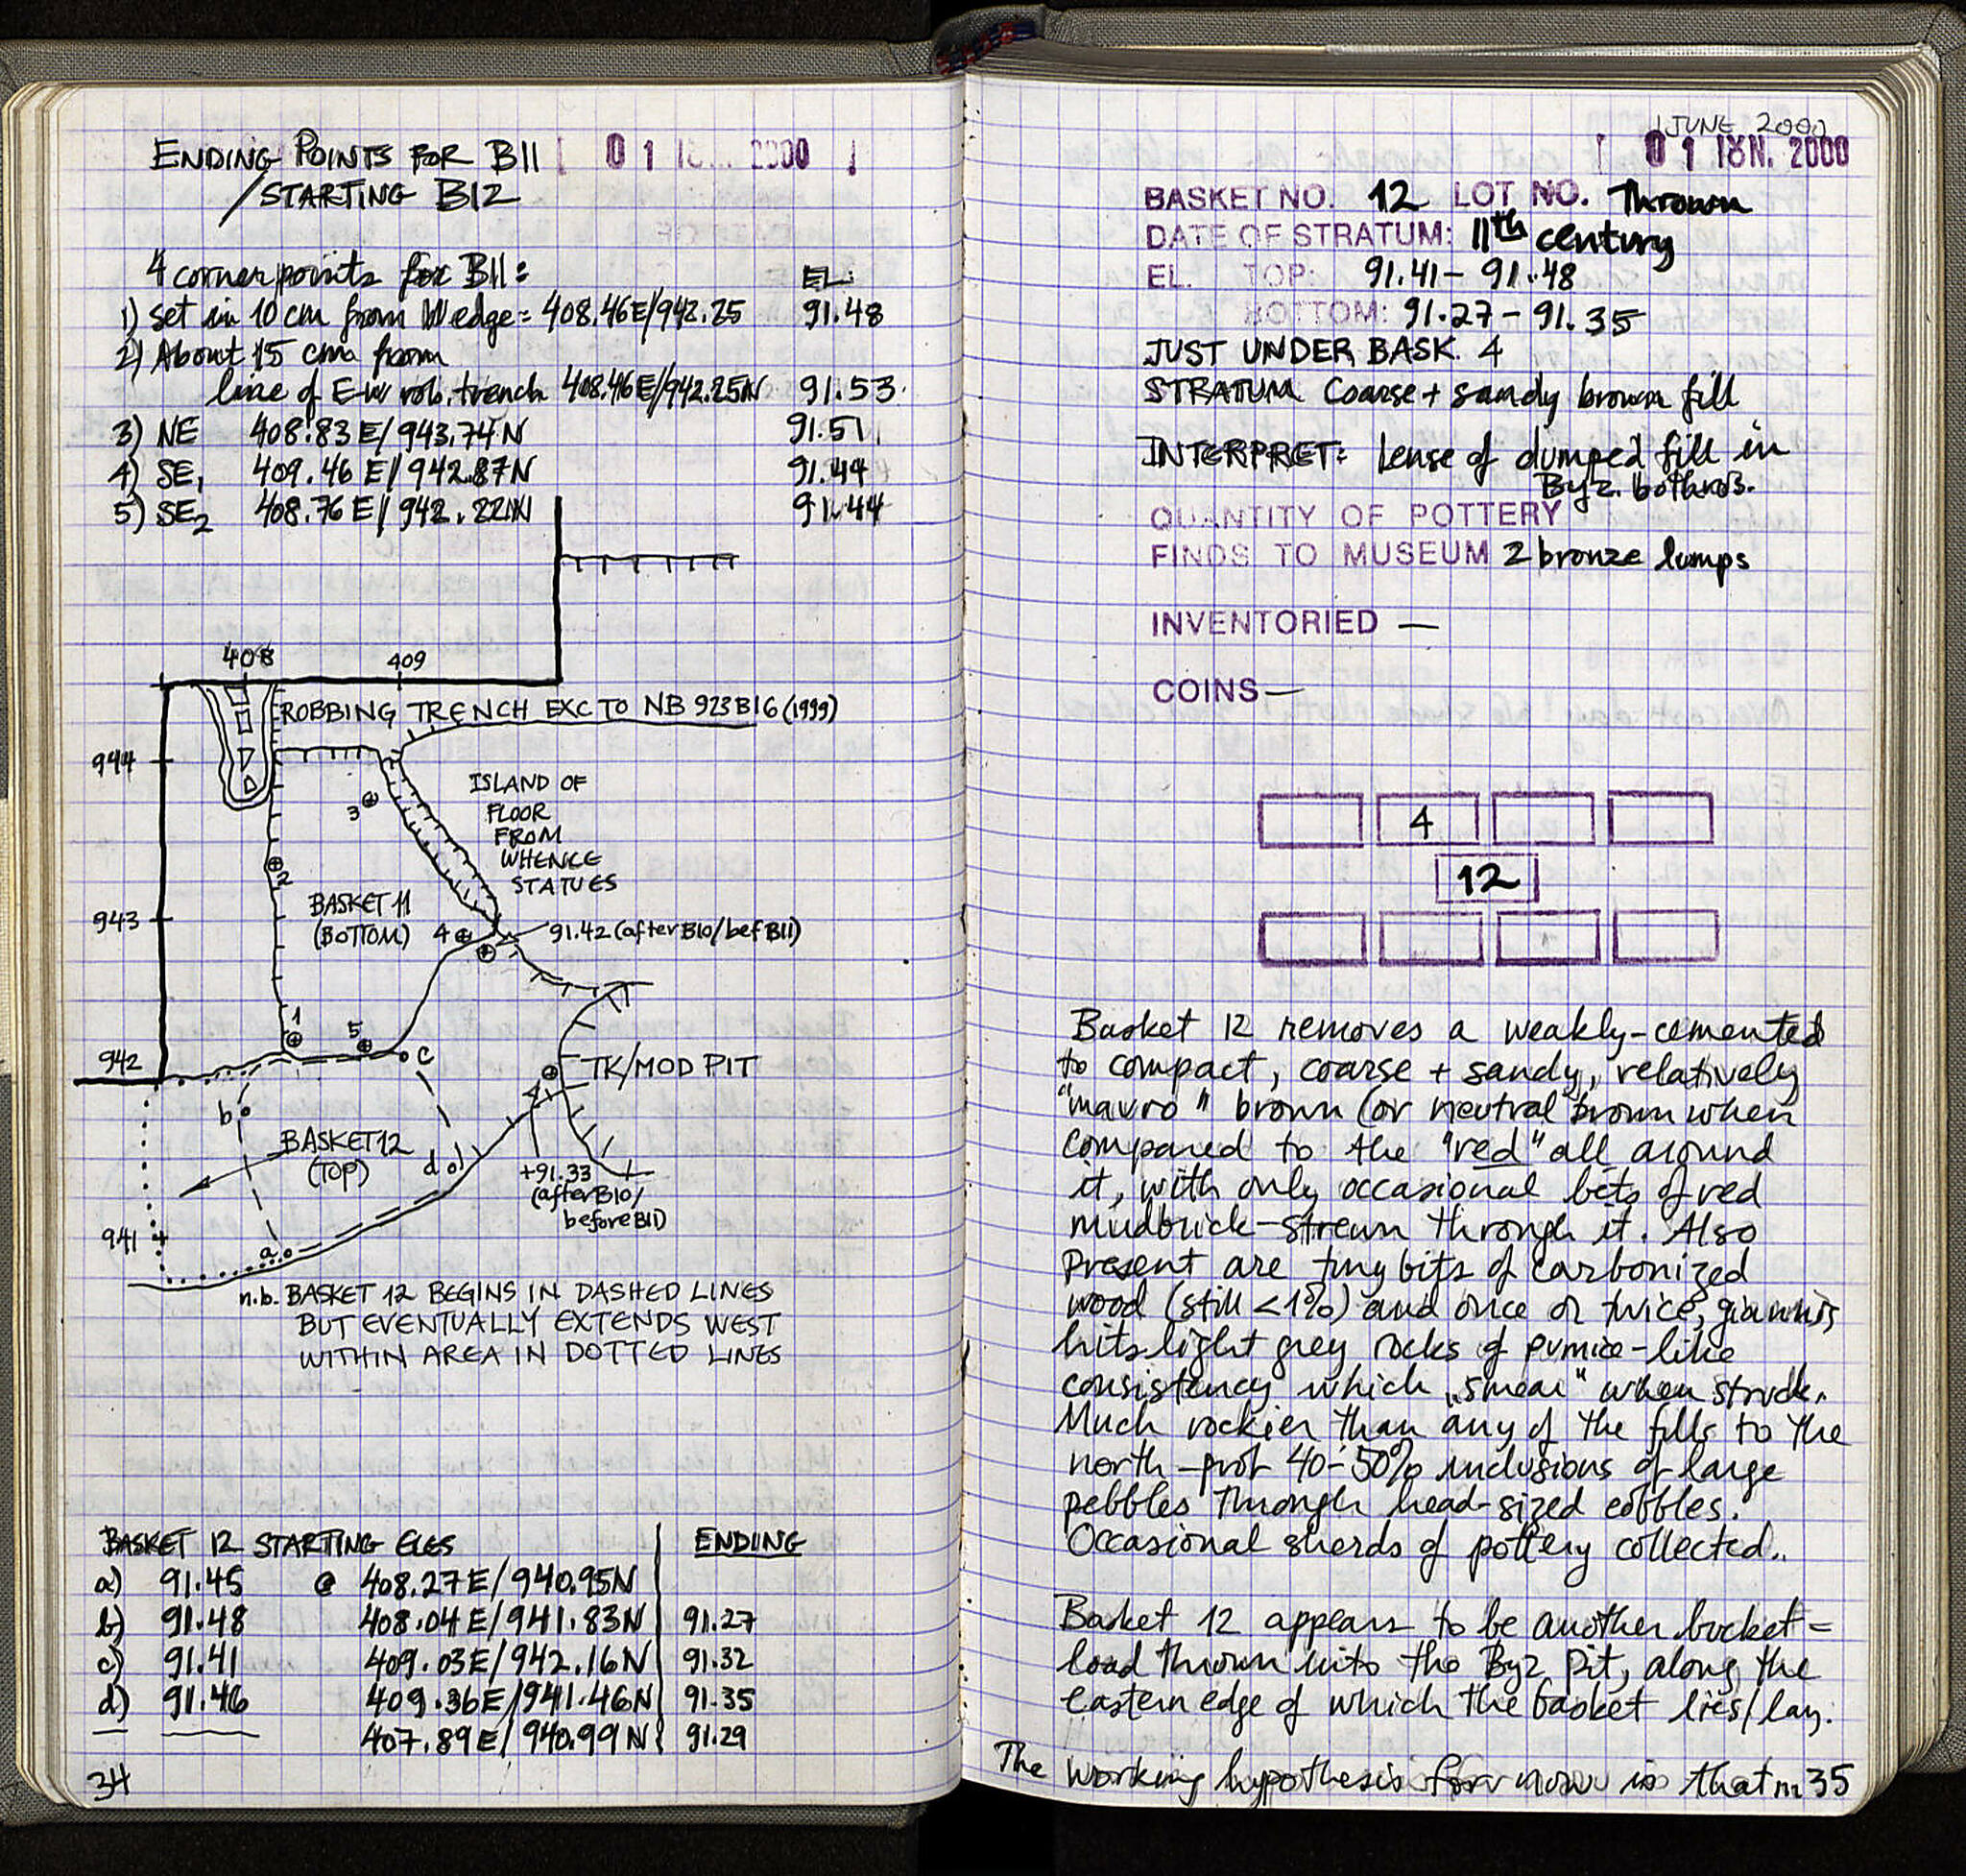 ENDING POINTS FOR B11 [ 01 2000 ]
/STARTING B12
4 corner points for B11: EL:
1) set in 10 cm from W edge = 408.46E/942.25 91.48
2) About 15 cm from
line of E-W rob. trench 408.46E/942.25N 91.53
3) NE 408.83 E/943.74 N 91.51
4) SE1 409.46 E/942.87N 91.44
5) SE2 408.76 E/942.22N 91.44
408 409
ROBBING TRENCH EXC TO NB 923 B16 (1999)
944
ISLAND OF
FLOOR
FROM
WHENCE
STATUES
3
2
943
BASKET 11
(BOTTOM)
4
91.42 (after B10/bef B11)
1
5
942
c
TK/MOD PIT
b
BASKET 12
(TOP)
d
+91.33
(after B10/
before B11)
941
a
n.b. BASKET 12 BEGINS IN DASHED LINES
BUT EVENTUALLY EXTENDS WEST
WITHIN AREA IN DOTTED LINES
BASKET 12 STARTING ELES ENDING
a) 91.45 @ 408.27E/940.95N
b) 91.48 408.04E/941.83N 91.27
c) 91.41 409.03E/942.16N 91.32
d) 91.46 409.36E/941.46N 91.35
— — 407.89E/940.99N 91.29
34
1 JUNE 2000
[ 01 IUN. 2000
BASKET NO. 12 LOT NO. Thrown
DATE OF STRATUM: 11th century
EL. TOP: 91.41 - 91.48
BOTTOM: 91.27 - 91.35
JUST UNDER BASK. 4
STRATUM Coarse + sandy brown fill
INTERPRET: Lense of dumped fill in
Byz. bothros.
QUANTITY OF POTTERY
FINDS TO MUSEUM 2 bronze lumps
INVENTORIED —
COINS —
4
12
Basket 12 removes a weakly-cemented
to compact, coarse + sandy, relatively
"mavro" brown (or neutral brown when
compared to the "red" all around
it, with only occasional bits of red
mudbrick strewn through it. Also
present are tiny bits of carbonized
wood (still <1%) and once or twice, giannis
hits light grey rocks of pumice-like
consistency which „smear" when struck.
Much rockier than any of the fills to the
north - prob 40-50% inclusions of large
pebbles through head-sized cobbles.
Occasional sherds of pottery collected..
Basket 12 appears to be another bucket=
load thrown into the Byz pit, along the
eastern edge of which the basket lies/lay.
The working hypothesis for now is that 35